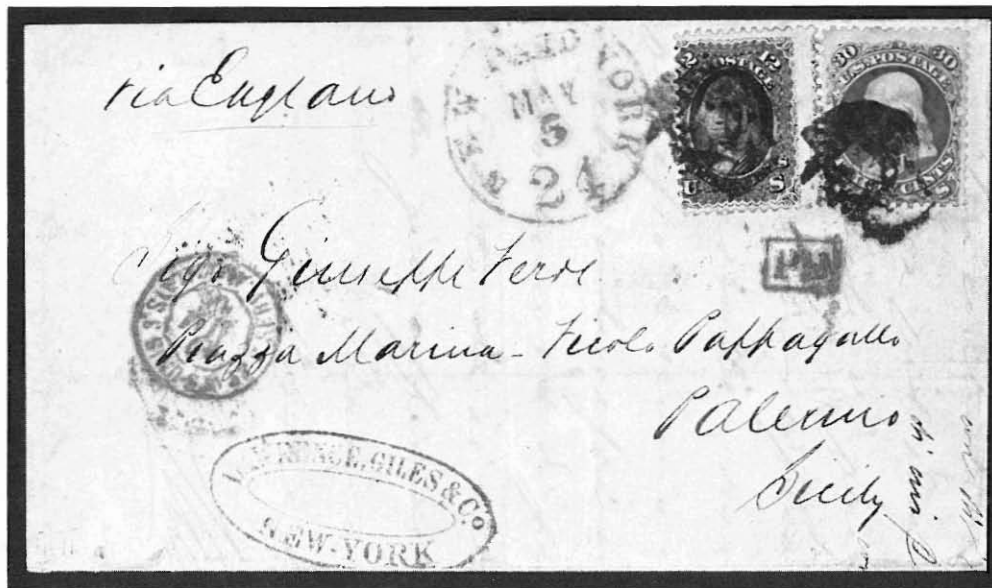 via England
NEW YORK
PAID
MAY
5
24
12 12
U.S. POSTAGE
U S
30 30
U.S. POSTAGE
CENTS
S
PD
Sigr Giuseppe Verde
Piazza Marina - Vicolo Pappagallo
Palermo
Sicily
LAWRENCE, GILES & Co
NEW-YORK